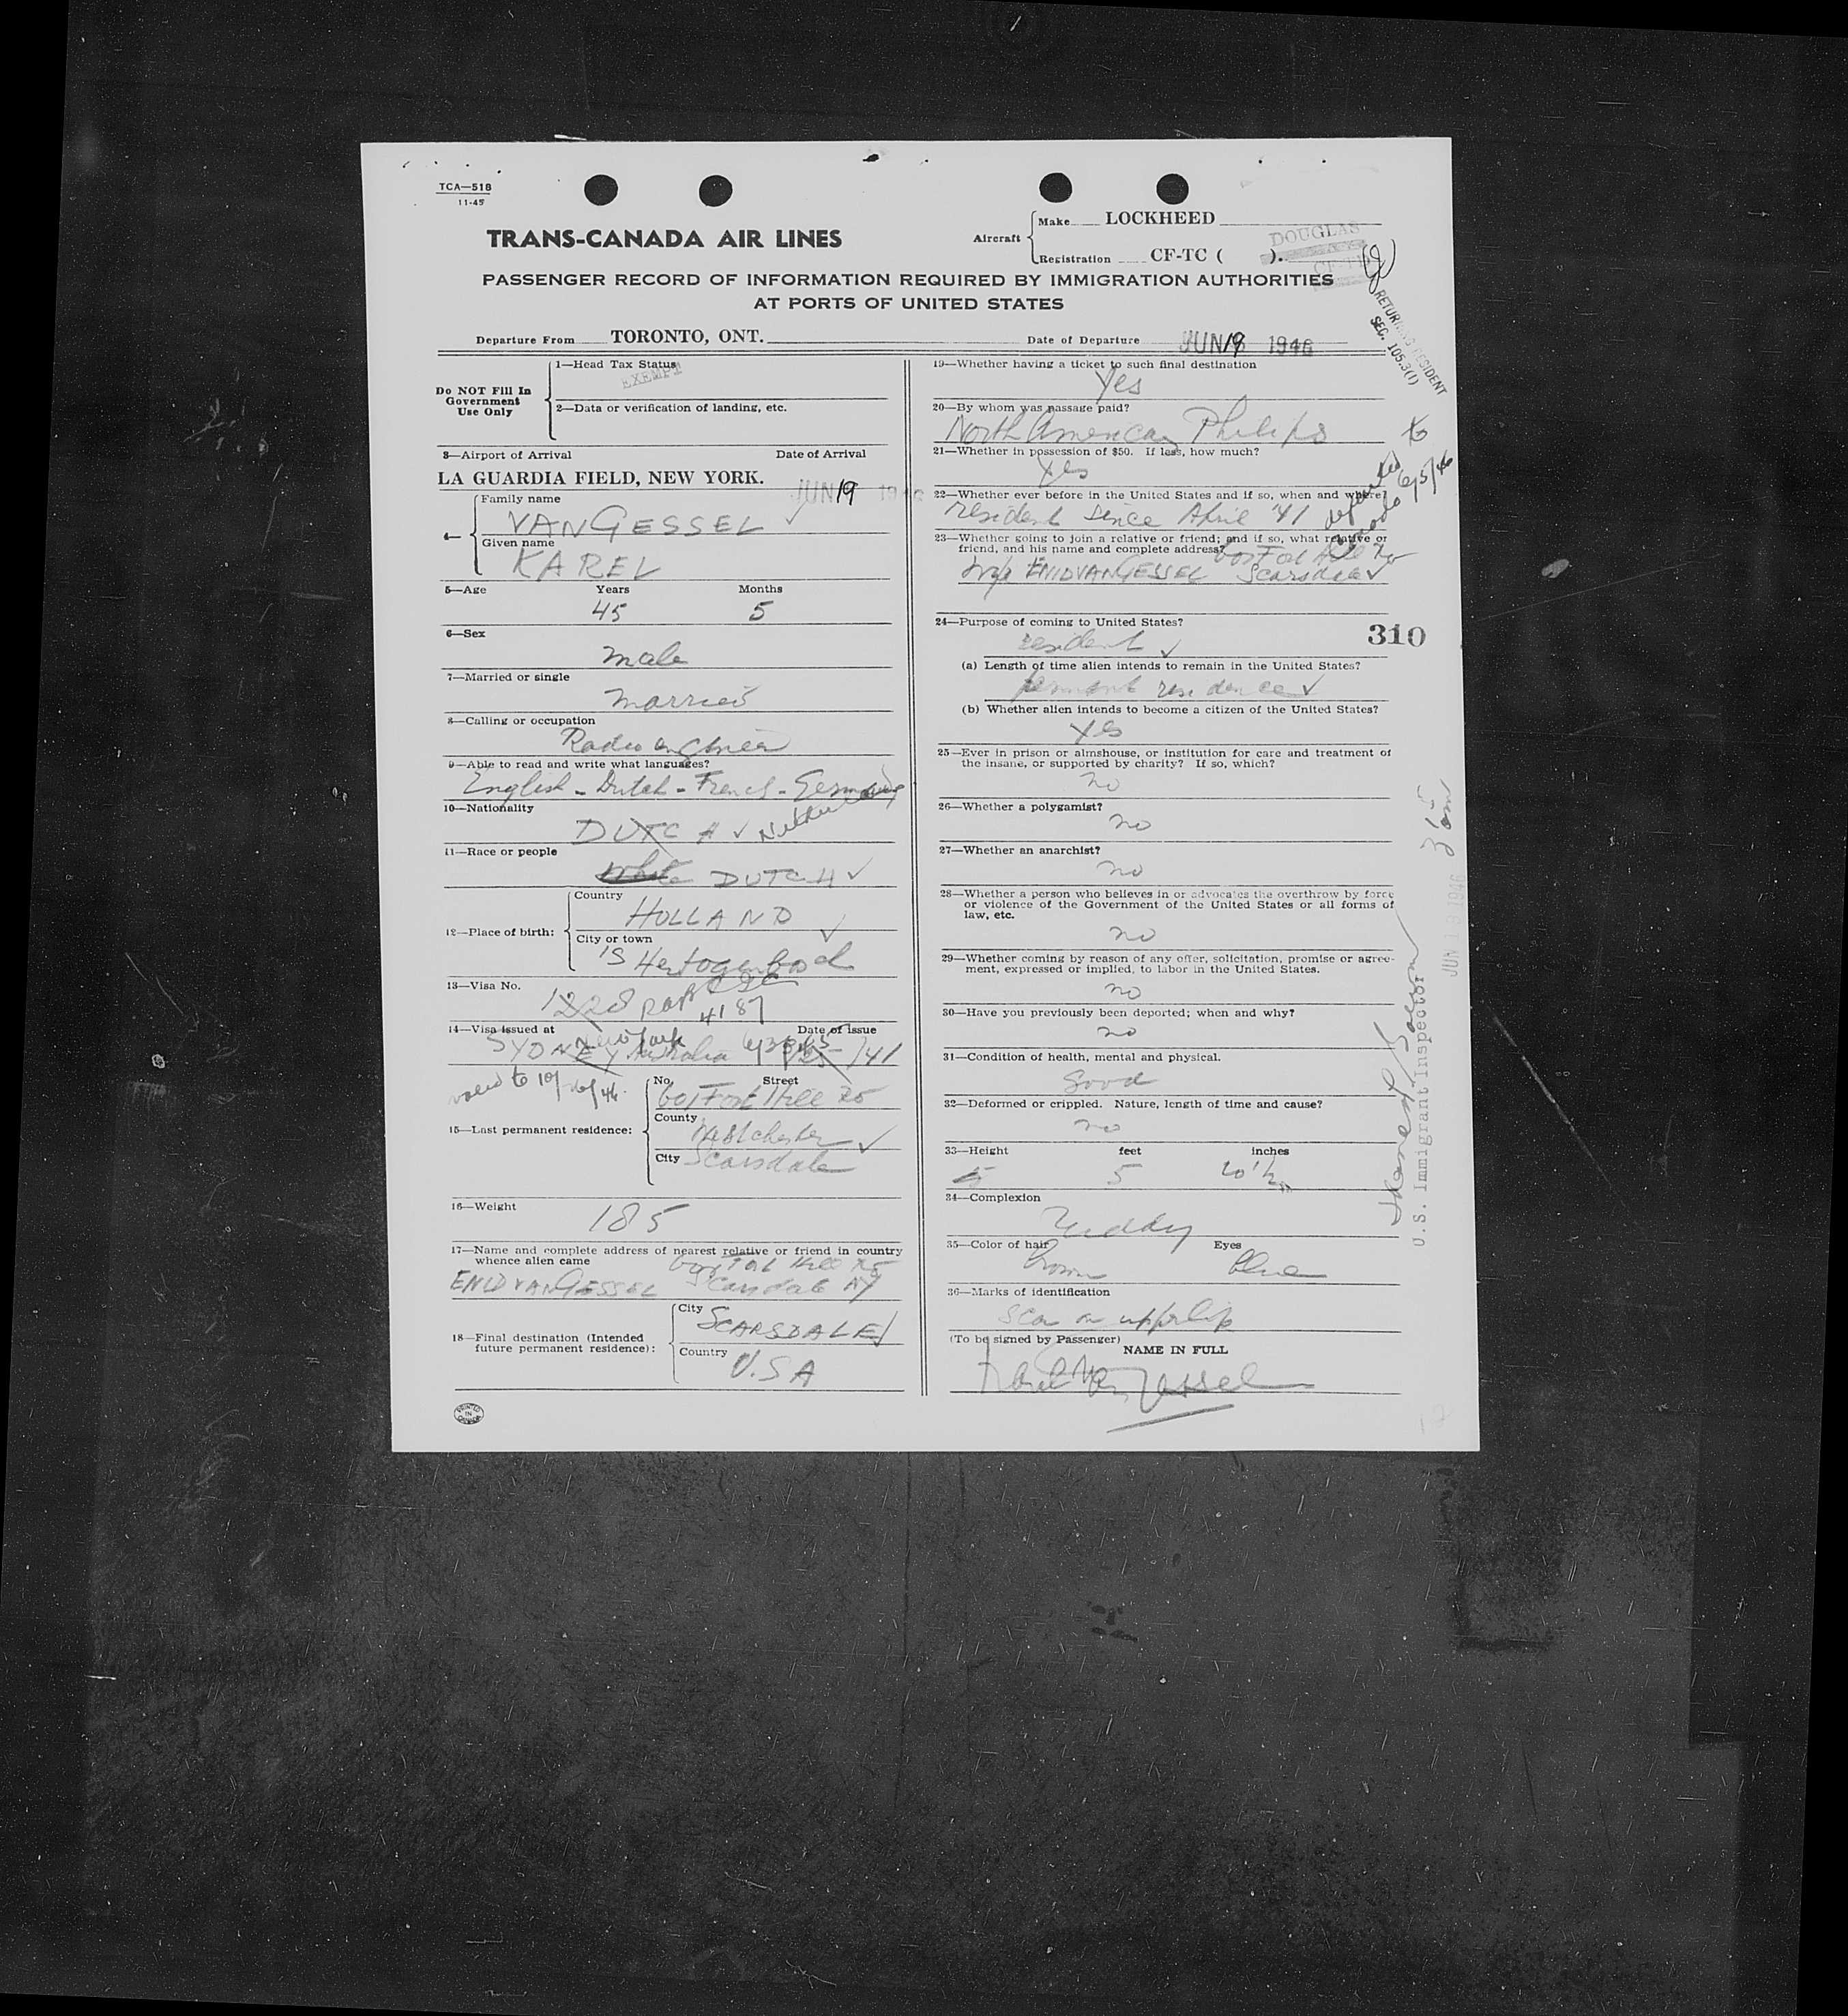 TCA—518
11-45
TRANS-CANADA AIR LINES
Aircraft
Make LOCKHEED
Registration CF-TC ( ).
DOUGLAS
PASSENGER RECORD OF INFORMATION REQUIRED BY IMMIGRATION AUTHORITIES
AT PORTS OF UNITED STATES
RETURNING RESIDENT
SEC. 105.3(1)
Departure From TORONTO, ONT.
Date of Departure JUN 19 1946
Do NOT Fill In
Government
Use Only
1—Head Tax Status
EXEMPT
2—Data or verification of landing, etc.
3—Airport of Arrival Date of Arrival
LA GUARDIA FIELD, NEW YORK. JUN 19 1946
4—
Family name
VAN GESSEL ✓
Given name
KAREL
5—Age Years Months
45 5
6—Sex
male
7—Married or single
married
8—Calling or occupation
Radio engineer
9—Able to read and write what languages?
English - Dutch - French - German
10—Nationality
DUTCH ✓
11—Race or people
White DUTCH ✓
12—Place of birth:
Country
HOLLAND
City or town
'S Hertogenbosch
13—Visa No.
4187
14—Visa issued at Date of issue
New York
SYDNEY Australia /41
valid to 10/ /46.
15—Last permanent residence:
No. Street
Fort Hill Rd
County
Westchester ✓
City Scarsdale
16—Weight
185
17—Name and complete address of nearest relative or friend in country
whence alien came
Fort Hill Rd
ENID VAN GESSEL Scarsdale NY
18—Final destination (Intended
future permanent residence):
City
SCARSDALE ✓
Country
U.S.A
PRINTED
IN
CANADA
19—Whether having a ticket to such final destination
Yes
20—By whom was passage paid?
North American Philips
21—Whether in possession of $50. If less, how much?
Yes
22—Whether ever before in the United States and if so, when and where?
resident since April '41
departed to
Canada 6/5/46
23—Whether going to join a relative or friend; and if so, what relative or
friend, and his name and complete address?
Fort Hill Rd
ENID VAN GESSEL Scarsdale ✓
24—Purpose of coming to United States?
resident ✓
310
(a) Length of time alien intends to remain in the United States?
residence ✓
(b) Whether alien intends to become a citizen of the United States?
Yes
25—Ever in prison or almshouse, or institution for care and treatment of
the insane, or supported by charity? If so, which?
no
26—Whether a polygamist?
no
27—Whether an anarchist?
no
28—Whether a person who believes in or advocates the overthrow by force
or violence of the Government of the United States or all forms of
law, etc.
no
29—Whether coming by reason of any offer, solicitation, promise or agree-
ment, expressed or implied, to labor in the United States.
no
30—Have you previously been deported; when and why?
no
31—Condition of health, mental and physical.
good
32—Deformed or crippled. Nature, length of time and cause?
no
33—Height feet inches
5 10 1/2
34—Complexion
ruddy
35—Color of hair Eyes
brown blue
36—Marks of identification
scar on upperlip
(To be signed by Passenger)
NAME IN FULL
Karel van Gessel
U.S. Immigrant Inspector